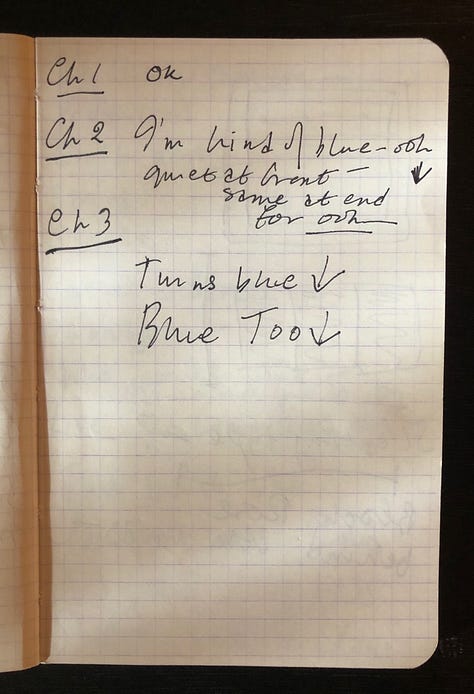 Ch 1 ok
Ch 2 I'm kind of blue - ooh ↓
quiet at front -
same at end
for ooh
Ch 3
Turns blue ↓
Blue Too ↓